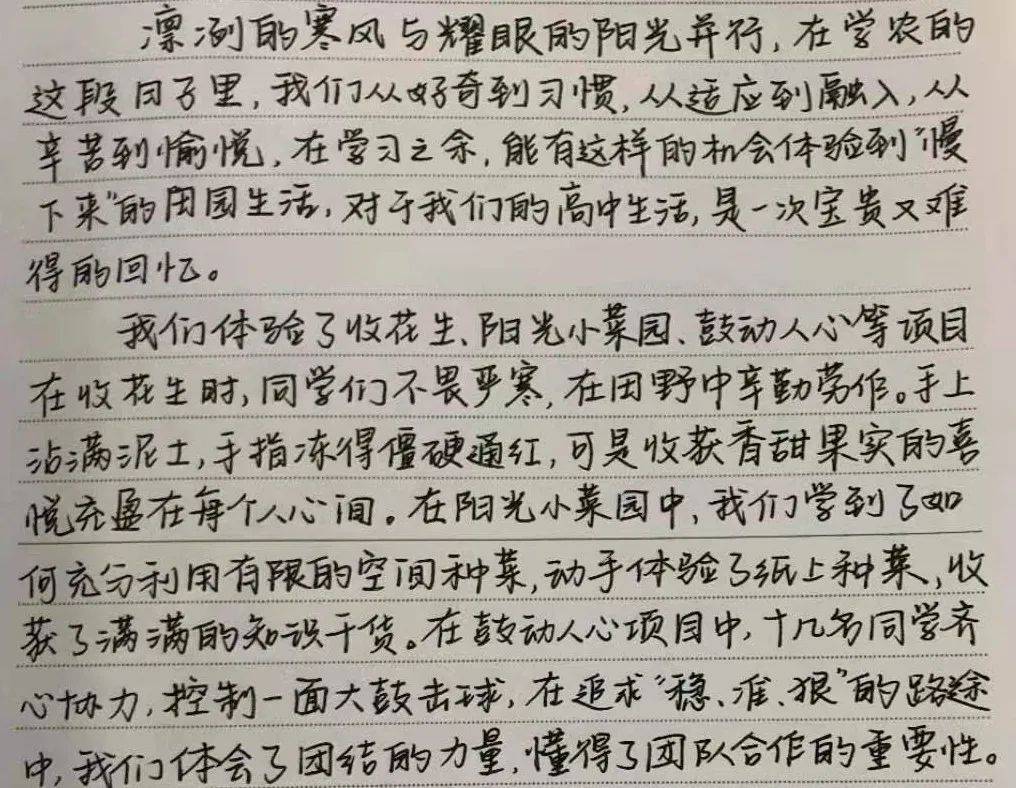 凛冽的寒风与耀眼的阳光并行，在学农的
这段日子里，我们从好奇到习惯，从适应到融入，从
辛苦到愉悦，在学习之余，能有这样的机会体验到“慢
下来”的田园生活，对于我们的高中生活，是一次宝贵又难
得的回忆。
我们体验了收花生、阳光小菜园、鼓动人心等项目
在收花生时，同学们不畏严寒，在田野中辛勤劳作。手上
沾满泥土，手指冻得僵硬通红，可是收获香甜果实的喜
悦充盈在每个人心间。在阳光小菜园中，我们学到了如
何充分利用有限的空间种菜，动手体验了纸上种菜，收
获了满满的知识干货。在鼓动人心项目中，十几名同学齐
心协力，控制一面大鼓击球，在追求“稳、准、狠”的路途
中，我们体会了团结的力量，懂得了团队合作的重要性。